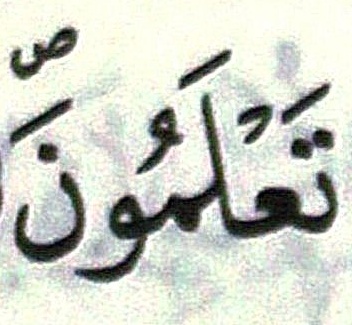 تَعْلَمُونَ ص